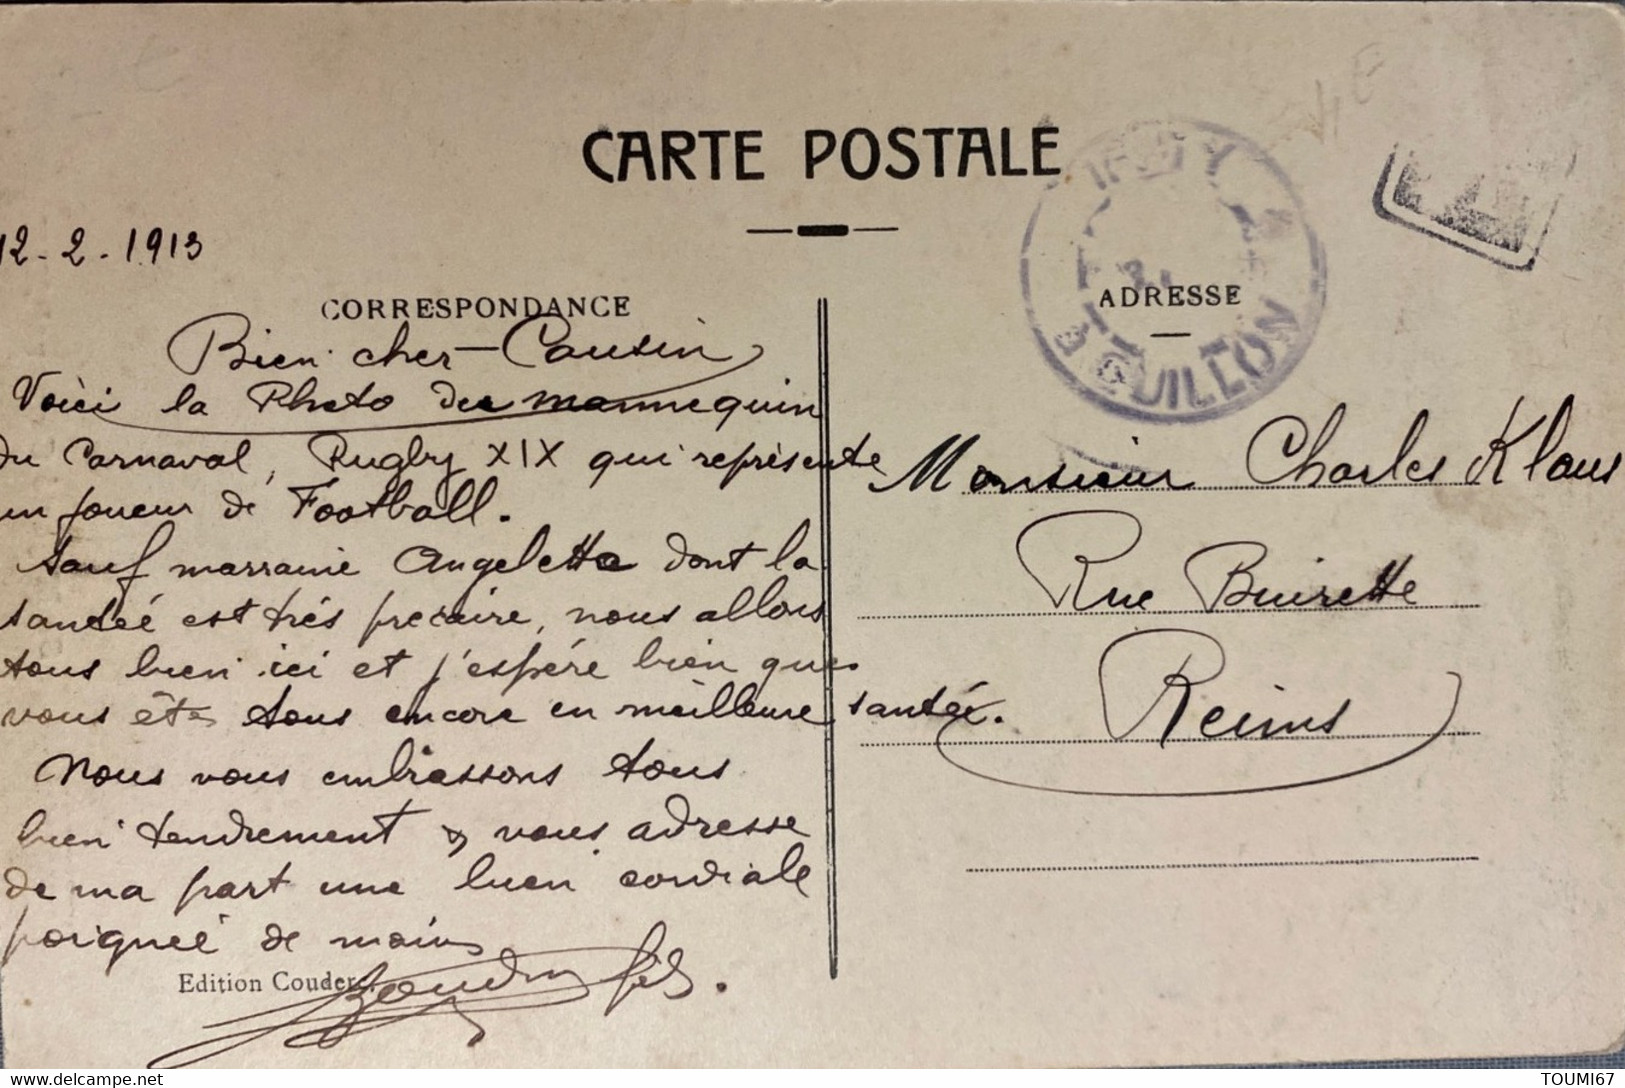 CARTE POSTALE
12-2-1913
CORRESPONDANCE
ADRESSE
Bien cher Cousin
Voici la Photo du mannequin
du Carnaval, Rugby XIX qui représente
un joueur de Football.
Sauf marraine Angeletta dont la
santéé est trés precaire, nous allons
tous bien ici et j'espére bien que
vous étes tous encore en meilleure santéé.
Nous vous embrassons tous
bien tendrement & vous adresse
de ma part une bien cordiale
poignéé de mains
fils.
Edition Couderc
Monsieur Charles Klaus
Rue Buirette
Reims
TOUMI67